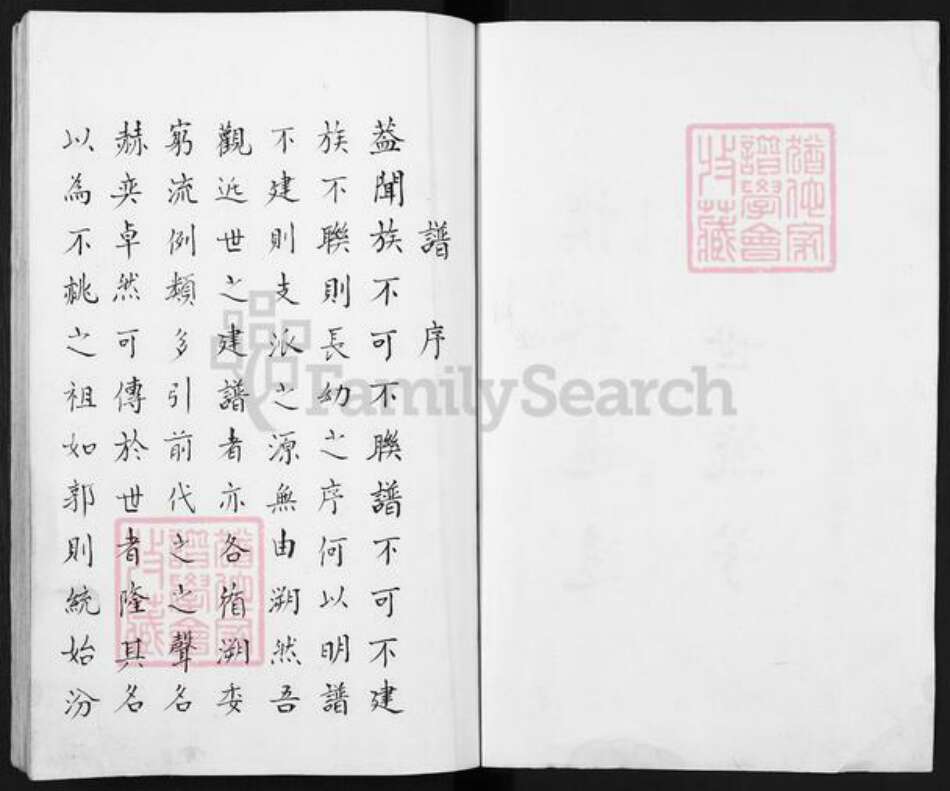 譜序
蓋聞族不可不聯譜不可不建
族不聯則長幼之序何以明譜
不建則支派之源無由朔然吾
觀近世之建譜者亦各循溯委
窮流例類多引前代之之聲名
赫奕卓然可傳於世者隆其名
以為不祧之祖如郭則統始汾
FamilySearch
猶他家
譜學會
收藏
猶他家
譜學會
收藏